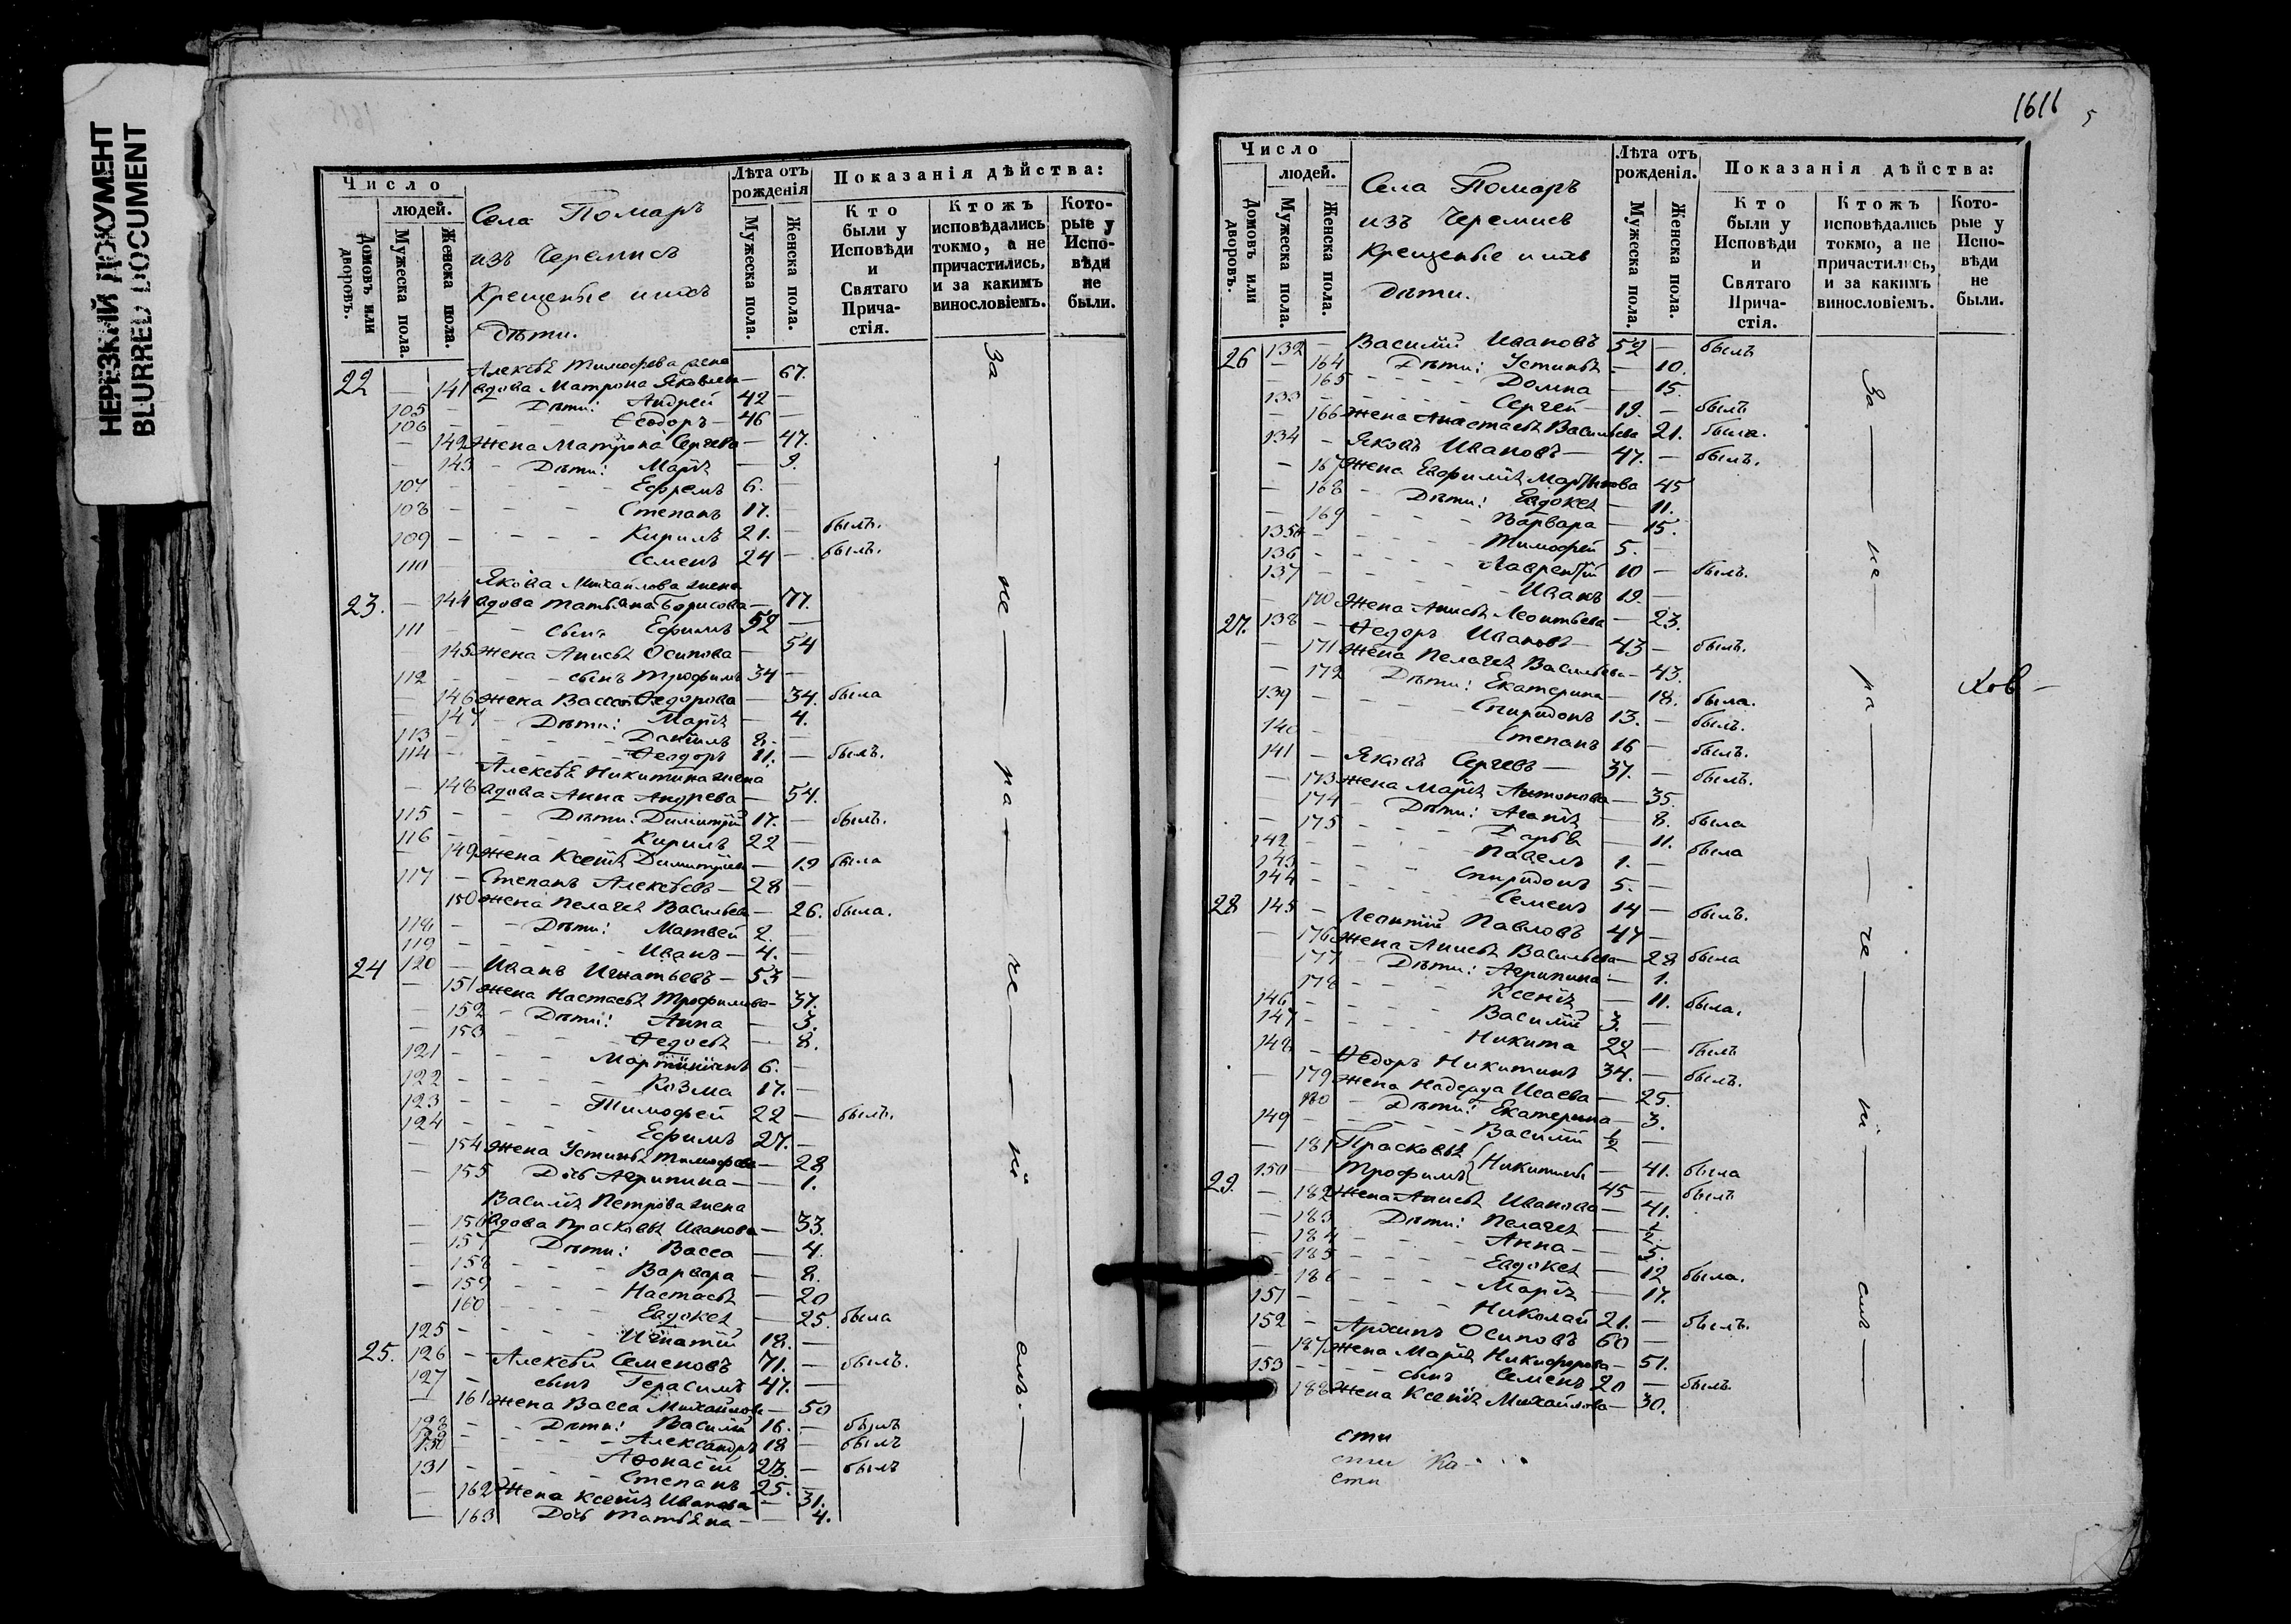 НЕРЕЗКИЙ ДОКУМЕНТ
BLURRED DOCUMENT
Число
людей.
Домовъ или дворовъ.
Мужеска пола.
Женска пола.
Села Помаръ
изъ Черемисъ
Крещеные и ихъ
Дѣти.
Лѣта отъ рожденія
Мужеска пола.
Женска пола.
Показанія дѣйства:
Кто были у Исповѣди и Святаго Прича-стія.
Ктожъ исповѣдались токмо, а не причастились, и за какимъ винословіемъ.
Кото-рые у Испо-вѣди не были.
За — не — ра — че — нї — емъ. —
Алексѣя Тимофева жена
22 — 141 вдова Матрона Яковлева — 67.
105 — Дѣти: Андрей 42 —
106 — Ѳеодоръ — 46 —
— 142 Жена Матрона Сергева — 47.
— 143 — Дѣти: Марія — 9.
107 — Ефремъ 6. —
108 — Степанъ 17. —
109 — Кирилъ 21. — былъ.
110 — Семенъ 24 — былъ.
Якова Михайлова жена
23. — 144 вдова Татьяна Борисова — 77.
111 — сынъ Ефимъ 52 —
— 145 Жена Анисья Осипова — 54
112 — сынъ Трофимъ 34 —
— 146 Жена Васса Ѳедорова — 34. была
— 147 — Дѣти: Марія — 4.
113 — Данилъ 8. —
114 — Ѳеодоръ 11. — былъ.
Алексѣя Никитина жена
— 148 вдова Анна Андрева — 54.
115 — Дѣти: Димитрій 17. — былъ.
116 — Кирилъ 22 —
— 149 Жена Ксенія Димитріева — 19 была
117 — Степанъ Алексѣевъ — 28 —
150 Жена Пелагея Васильева — 26. была.
118 — Дѣти: Матвей 2. —
119 — Иванъ — 4. —
24 120 — Иванъ Игнатьевъ — 53 —
— 151 Жена Настасья Трофимова — 37.
— 152 — Дѣти: Анна — 3.
— 153 — Ѳедосья — 8.
121 — 6. —
122 — Козма 17. —
123 — Тимофей 22 — былъ.
124 — Ефимъ 27. —
— 154 Жена Устинья Тимофева — 28
— 155 Дочь Агрипина — 1.
Василія Петрова жена
— 156 вдова Прасковья Иванова — 33.
— 157 Дѣти: Васса — 4.
— 158 — Варвара — 8.
— 159 — Настасья — 20
160 — Евдокея — 25. была
125 — Игнатій 18. —
25. 126 — Алексѣй Семеновъ 71. — былъ.
127 — сынъ Герасимъ 47. —
— 161 Жена Васса Михайлова — 50
128 — Дѣти: Василій 16. — былъ
— Александръ 18 — былъ
130 — Афонасій 23. — былъ
131 — Степанъ 25. —
— 162 Жена Ксенія Иванова — 31.
— 163 Дочь Татьяна — 4.
1616
5
Число
людей.
Домовъ или дворовъ.
Мужеска пола.
Женска пола.
Села Помаръ
изъ Черемисъ
Крещеные и ихъ
Дѣти.
Лѣта отъ рожденія.
Мужеска пола.
Женска пола.
Показанія дѣйства:
Кто были у Исповѣди и Святаго Прича-стія.
Ктожъ исповѣдались токмо, а не причастились, и за какимъ винословіемъ.
Кото-рые у Испо-вѣди не были.
За — не — ра — че — нї — емъ —
26 132 — Василій Ивановъ 52 — былъ
— 164 Дѣти: Устинья — 10.
— 165 — Домна — 15.
133 — Сергей — 19. — былъ
— 166 Жена Анастасья Васильева 21. была.
134 — Яковъ Ивановъ — 47. — былъ.
— 167 Жена Евфимія Мартынова 45
— 168 — Дѣти: Евдокея — 11.
— 169 — Варвара — 15.
135 — Тимофей 5. —
136 — Лаврентій 10 — былъ.
137 — Иванъ 19. —
— 170 Жена Анисья Леонтьева — 23.
27. 138 — Ѳедоръ Ивановъ — 43 — былъ.
— 171 Жена Пелагея Васильева — 43.
— 172 Дѣти: Екатерина — 18. была.
139 — Спиридонъ 13. — былъ.
140 — Степанъ 16 — былъ.
141 — Яковъ Сергевъ — 37. — былъ.
— 173 Жена Марія Антонова — 35.
— 174 — Дѣти: Агапія — 8. была
— 175 — Дарья — 11. была
142 — Павелъ 1. —
143 — Спиридонъ 5. —
144 — Семенъ 14 — былъ.
28 145 — Леонтій Павловъ 47 —
— 176 Жена Анисья Васильева — 28 была
— 177 — Дѣти: Агрипина — 1.
178 — Ксенія — 11. была.
146 — Василій 3. —
147 — Никита 22 — былъ
148 — Ѳедоръ Никитинъ 34. — былъ.
— 179 Жена Надежда Исаева — 25.
180 — Дѣти: Екатерина — 3.
149 — Василій ½ —
— 181 Прасковья Никитины — 41. была
29. 150 — Трофимъ 45 — былъ
— 182 Жена Анисья Иванова — 41.
— 183 Дѣти: Пелагея — ½.
— 184 — Анна — 5.
— 185 — Евдокея — 12 была.
— 186 — Марія — 17.
151 — Николай 21. — былъ.
152 — Архипъ Осиповъ 60 —
— 187 Жена Марія Никифорова — 51.
153 — сынъ Семенъ 20 — былъ
188 Жена Ксенія Михайлова — 30.
сти
сти Ка-
сти